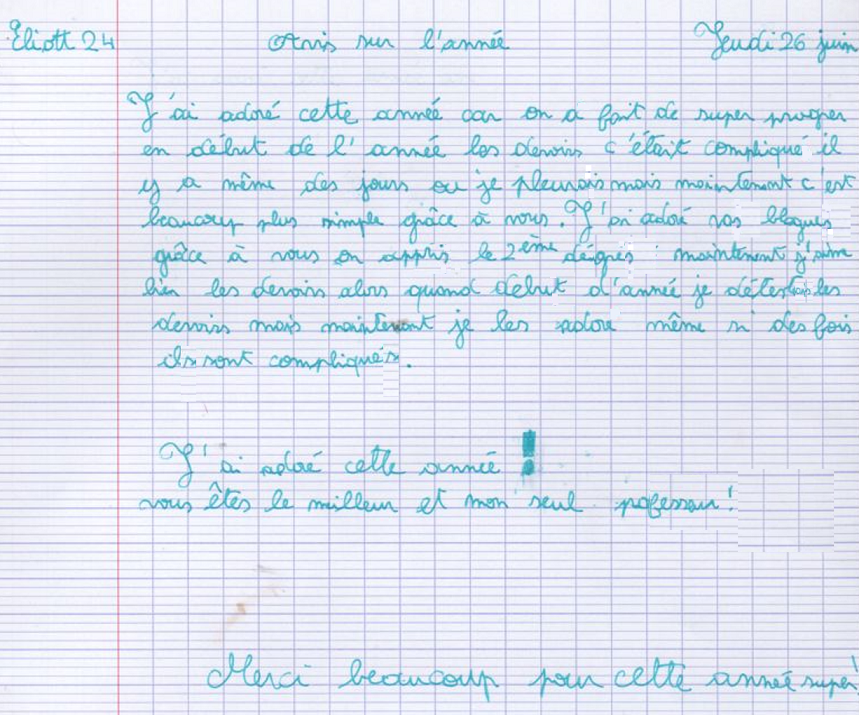 Eliott 24 Avis sur l'année Jeudi 26 juin
J'ai adoré cette année car on a fait de super progrer
en début de l'année les devoirs c'était compliqué il
y a même des jours ou je pleurais mais maintenant c'est
beaucoup plus simple grâce à vous. J'ai adoré vos blagues
grâce à vous on appris le 2ème dégrés maintenent j'aime
bien les devoirs alors quand début d'année je détestais les
devoirs mais maintenant je les adore même si des fois
ils sont compliqués.
J'ai adoré cette année !
vous êtes le meilleur et mon seul pofesseur !
Merci beaucoup pour cette année super!